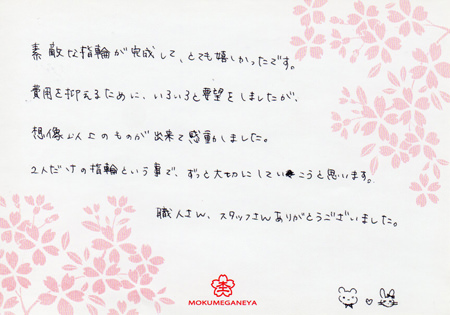 素敵な指輪が完成して、とても嬉しかったです。
費用を抑えるために、いろいろと要望をしましたが、
想像以上のものが出来て感動しました。
2人だけの指輪という事で、ずっと大切にしていこうと思います。
職人さん、スタッフさんありがとうございました。
MOKUMEGANEYA